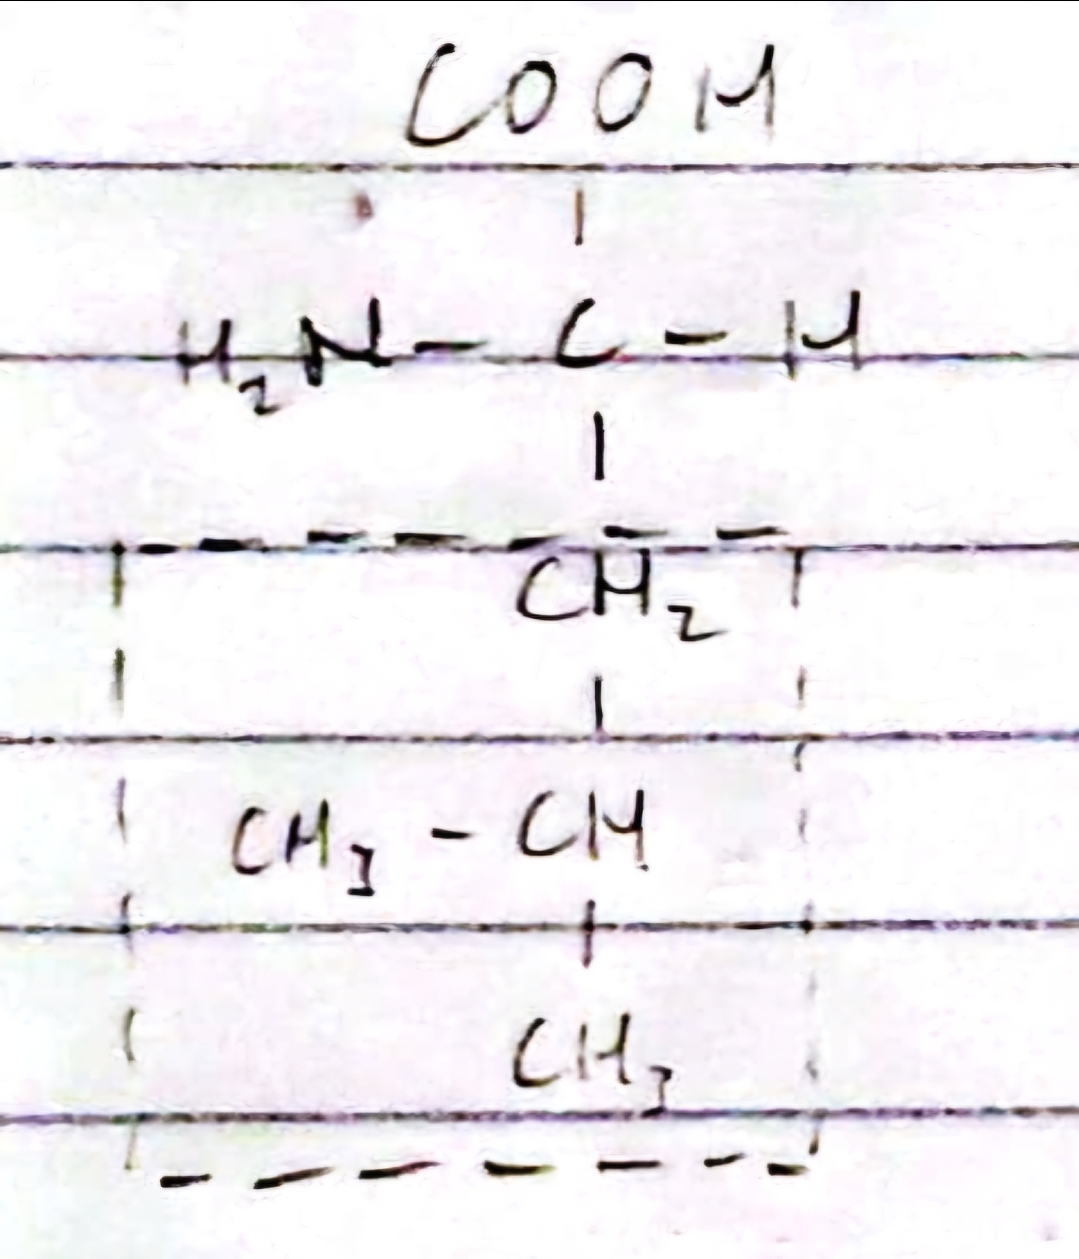 COOH
H₂N - C - H
CH₂
CH₃ - CH
CH₃